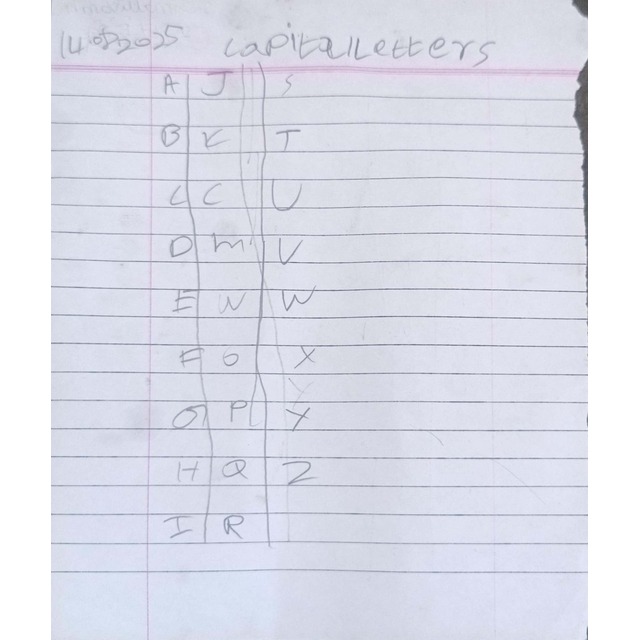 14.08.2025 capital Letters
A J S
B K T
C C U
D m V
E N W
F O X
G P Y
H Q Z
I R